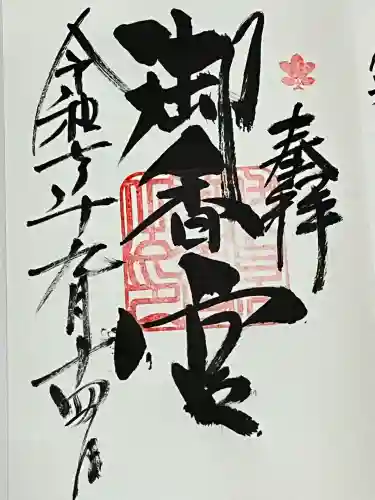 奉拝
御香宮
令和 年 月十四日